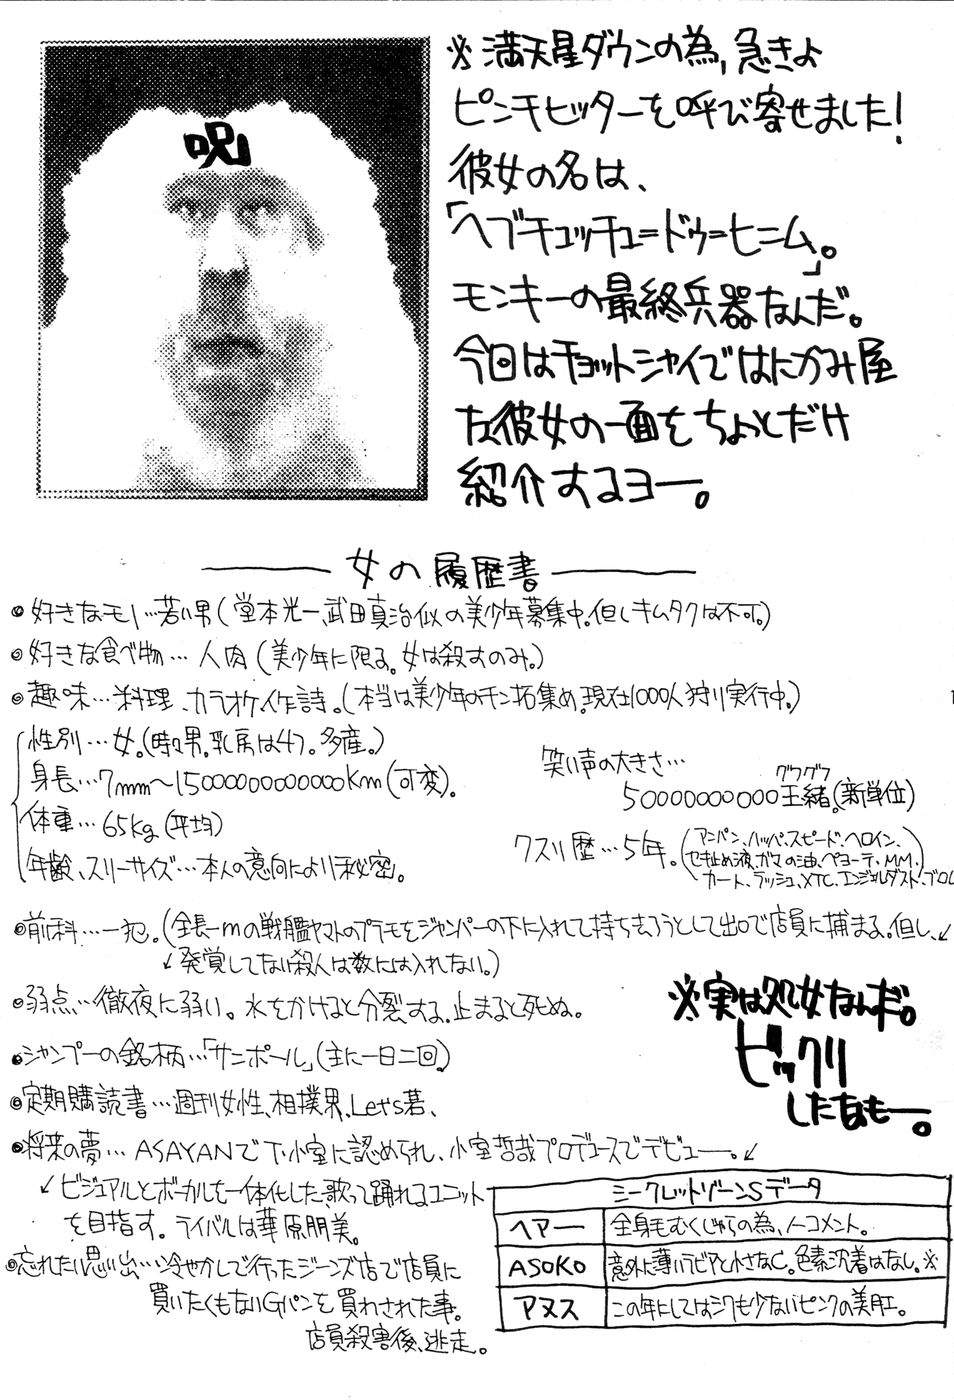 呪
※満天星ダウンの為,急きょ
ピンチヒッターを呼び寄せました!
彼女の名は、
「ヘブチュッチュ=ドゥ=ヒニム」。
モンキーの最終兵器なんだ。
今回はチョットシャイではにかみ屋
な彼女の一面をちょっとだけ
紹介するヨー。
女の履歴書
◎好きなモノ…若い男(堂本光一、武田真治似の美少年募集中。但しキムタクは不可。)
◎好きな食べ物…人肉(美少年に限る。女は殺すのみ。)
◎趣味…料理、カラオケ、作詩。(本当は美少年のチン拓集め。現在1000人狩り実行中。)
性別…女。(時々男。乳房は47。多産。)
身長…7mm〜15000000000000Km(可変)。
体重…65Kg(平均)
年齢、スリーサイズ…本人の意向により秘密。
笑い声の大きさ…
グウグウ
50000000000王緒。(新単位)
クスリ歴…5年。(アンパン、ハッパ、スピード、ヘロイン、
セキ止め液、ガマの油、ペヨーテ、MM、
カート、ラッシュ、XTC、エンジェルダスト、ブロ
◎前科…一犯。(全長一mの戦艦ヤマトのプラモをジャンパーの下に入れて持ち去ろうとして出口で店員に捕まる。但し、↙
↙発覚してない殺人は数には入れない。)
◎弱点…徹夜に弱い。水をかけると分裂する。止まると死ぬ。
◎シャンプーの銘柄…「サニポール」(主に一日二回)
◎定期購読書…週刊女性、相撲界、Let's若、
◎将来の夢…ASAYANで下小室に認められ、小室哲哉プロデュースでデビュー。↙
↙ビジュアルとボーカルを一体化した、歌って踊れるユニット
を目指す。ライバルは華原朋美。
◎忘れたい思い出…冷やかしで行ったジーンズ店で店員に
買いたくもないGパンを買わされた事。
店員殺害後、逃走。
※実は処女なんだ。
ビックリ
したなもー。
シークレットゾーンSデータ
ヘアー 全身毛むくじゃらの為、ノーコメント。
ASOKO 意外に薄いラビアと小さなC。色素沈着はなし。※
アヌス この年にしてはシワも少ないピンクの美肛。